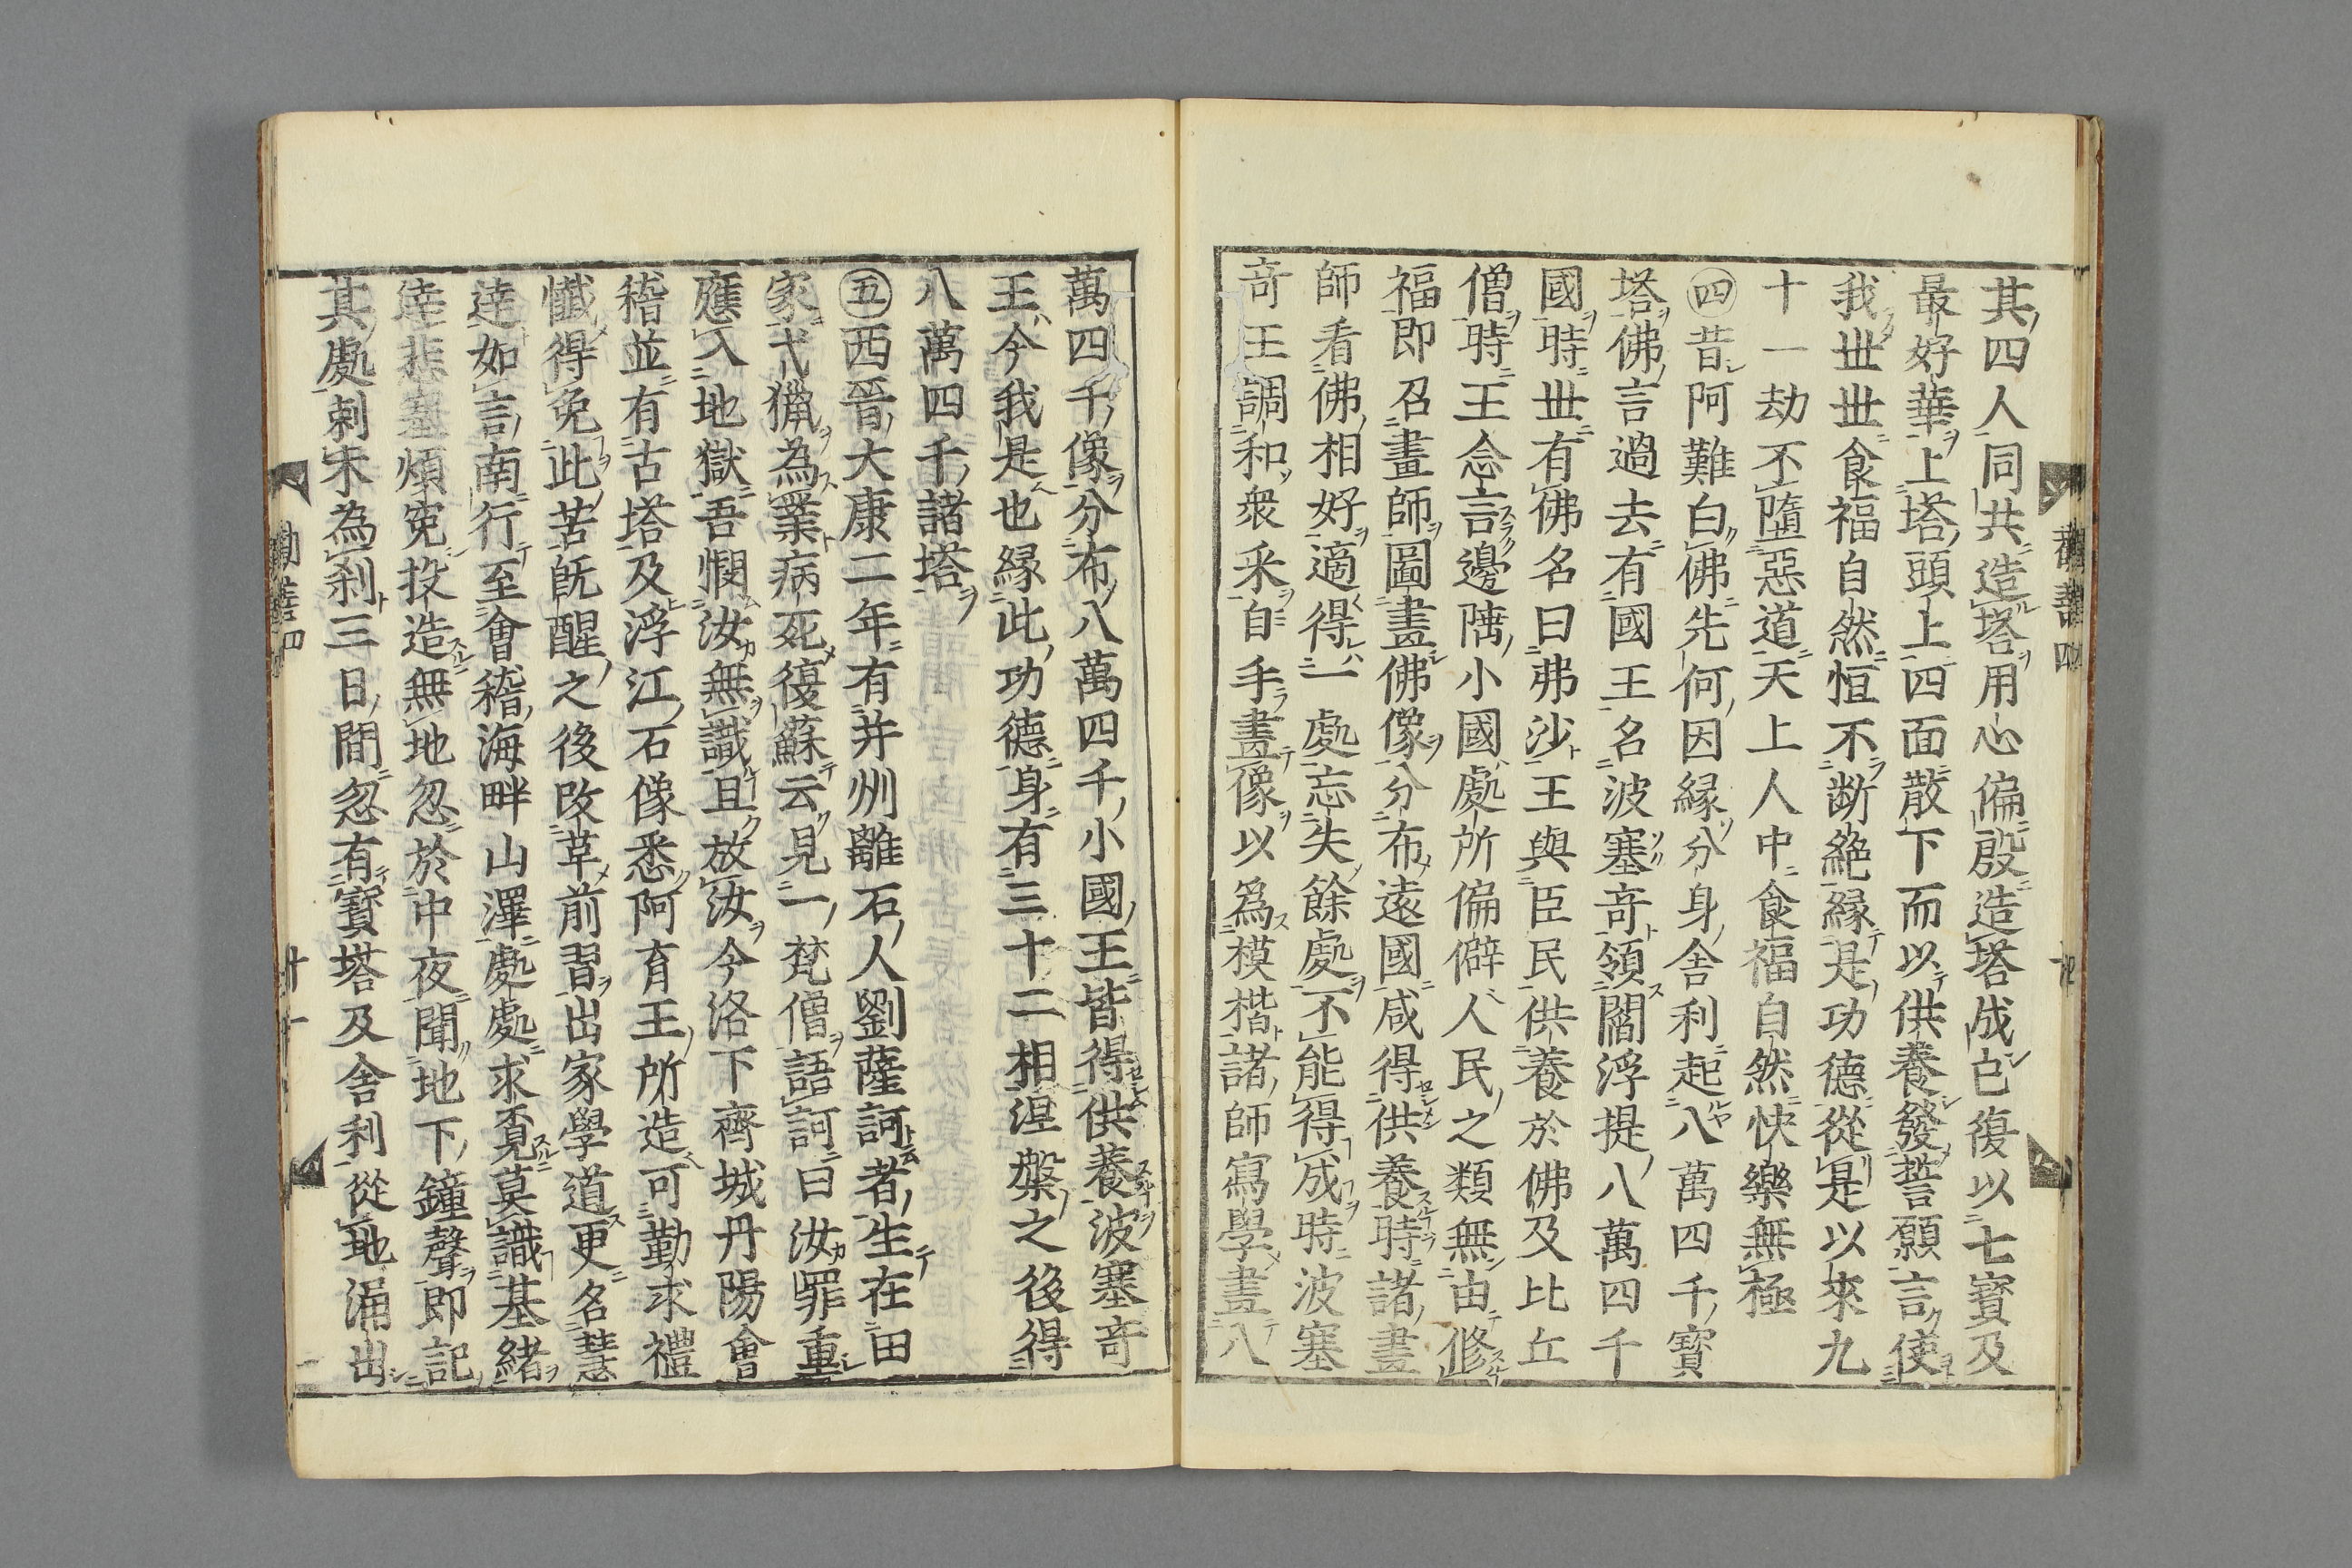 其四人同共造塔用心偏殷造塔成已復以七寳及
最好華上塔頭上四面散下而以供養發誓願言使
我丗丗食福自然恒不断絶縁是功德從是以來九
十一劫不墮惡道天上人中食福自然快樂無極
㊃昔阿難白佛先何因縁分身舎利起八萬四千寳
塔佛言過去有國王名波塞竒領閻浮提八萬四千
國時丗有佛名曰弗沙王與臣民供養於佛及比丘
僧時王念言邊隅小國處所偏僻人民之類無由修
福即召畫師圖畫佛像分布遠國咸得供養時諸畫
師看佛相好適得一處忘失餘處不能得成時波塞
竒王調和衆采自手畫像以爲模楷諸師寫學畫八
萬四千像分布八萬四千小國王皆得供養波塞竒
王今我是也縁此功德身有三十二相涅槃之後得
八萬四千諸塔
㊄西晉大康二年有并州離石人劉薩訶者生在田
家弋獵為業病死復蘇云見一梵僧語訶曰汝罪重
應入地獄吾憫汝無識且放汝今洛下齊城丹陽會
稽並有古塔及浮江石像悉阿育王所造可勤求禮
懺得免此苦旣醒之後改革前習出家學道更名慧
逹如言南行至會稽海畔山澤處處求覓莫識基緒
逹悲塞煩寃投造無地忽於中夜聞地下鐘聲即記
其處剌木為刹三日間忽有寳塔及舎利從地涌出
勸善四
十一